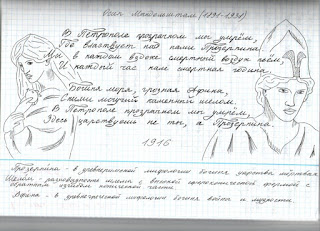 Осип Мандельштам (1891-1938)
В Петрополе прозрачном мы умрём,
Где властвует над нами Прозерпина.
Мы в каждом вздохе смертный воздух пьём,
И каждый час нам смертная година.
Богиня моря, грозная Афина,
Сними могучий каменный шелом.
В Петрополе прозрачном мы умрём,
Здесь царствуешь не ты, а Прозерпина.
1916
Прозерпина - в древнеримской мифологии богиня царства мёртвых
Шелом - разновидность шлема с высокой сфероконической формой с
Афина - в древнегреческой мифологии богиня войны и мудрости.